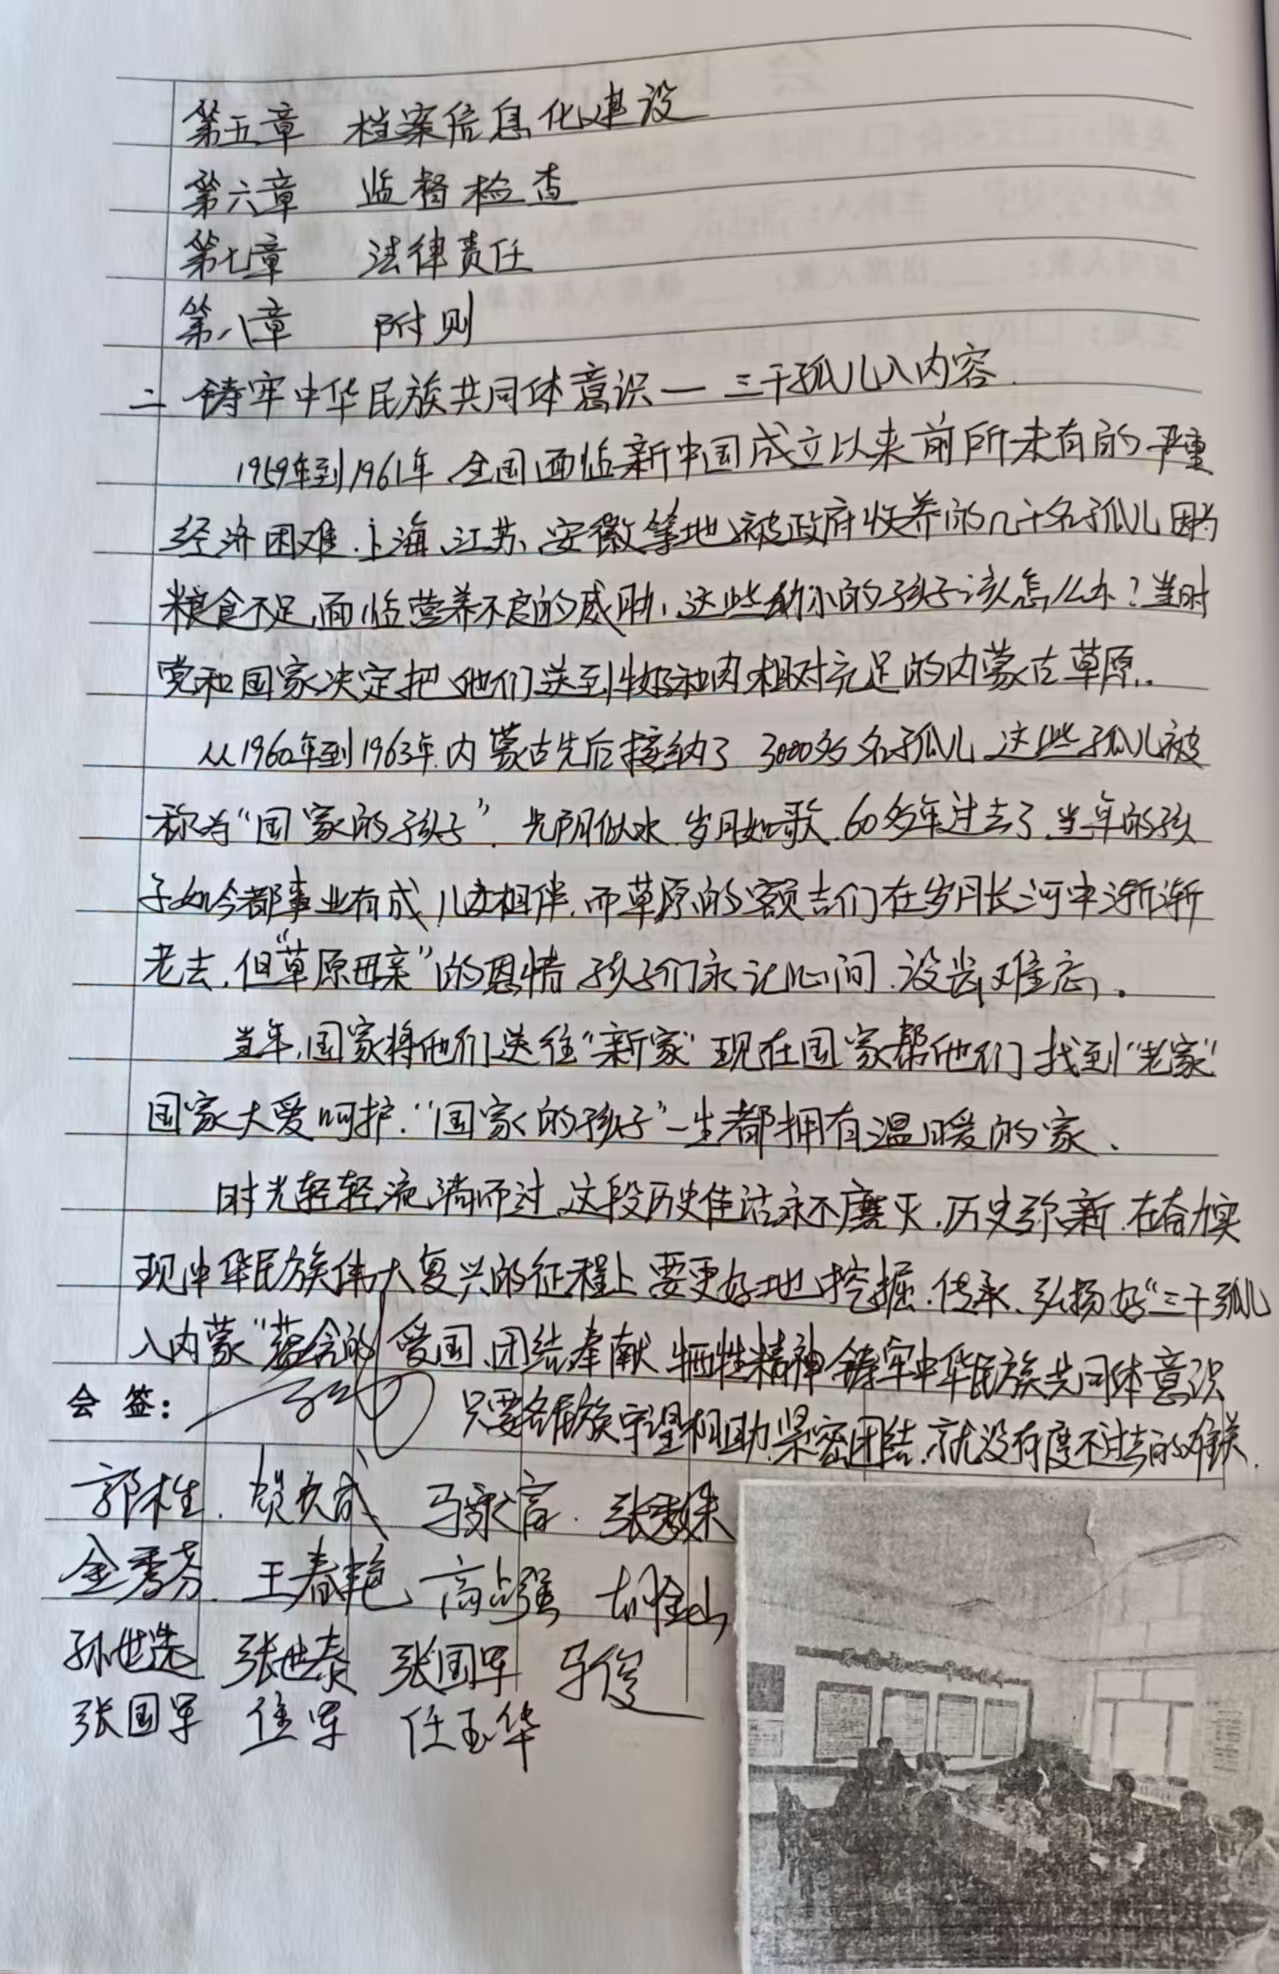 第五章 档案信息化建设
第六章 监督检查
第七章 法律责任
第八章 附则
二 铸牢中华民族共同体意识一 三千孤儿入内容.
1959年到1961年,全国面临新中国成立以来前所未有的严重
经济困难.上海、江苏、安徽等地被政府收养的几千名孤儿因为
粮食不足,面临营养不良的威胁,这些幼小的孩子该怎么办?当时
党和国家决定把他们送到牛奶和肉相对充足的内蒙古草原.
从1960年到1963年.内蒙古先后接纳了3000多名孤儿 这些孤儿被
称为“国家的孩子”.光阴似水 岁月如歌.60多年过去了.当年的孩
子如今都事业有成 儿孙相伴,而草原的额吉们在岁月长河中渐渐
老去,但“草原母亲”的恩情 孩子们永记心间.没齿难忘.
当年,国家将他们送往“新家”现在国家帮他们找到“老家”
国家大爱呵护.“国家的孩子”一生都拥有温暖的家.
时光轻轻流淌而过,这段历史佳话永不磨灭,历史弥新.在奋力实
现中华民族伟大复兴的征程上 要更好地挖掘.传承、弘扬好“三千孤儿
入内蒙”蕴含的爱国、团结奉献 牺牲精神 铸牢中华民族共同体意识
会 签:
只要各民族守望相助.紧密团结,就没有度不过去的难关.
郭桂 贺 成 马永富 张秀珠
金秀芬 王春艳 高占强 胡金山
孙世选 张世泰 张国军 马俊
张国军 佳军 任玉华